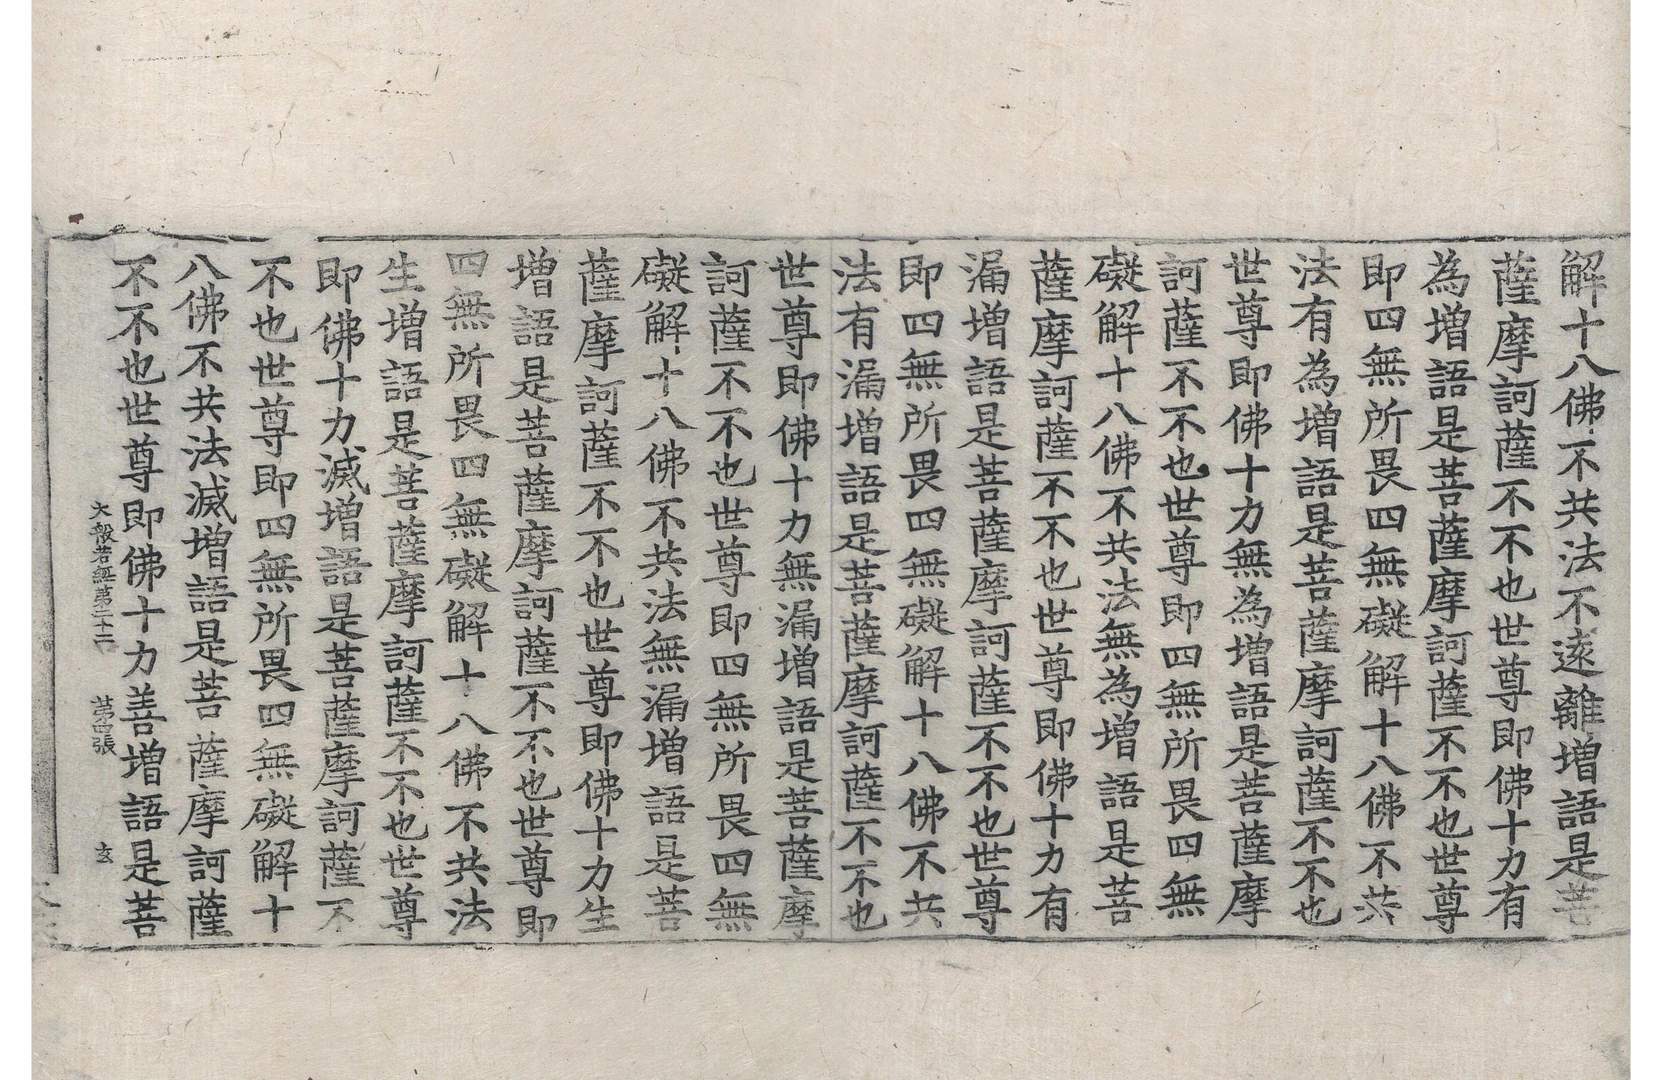 解十八佛不共法不遠離增語是菩
薩摩訶薩不不也世尊即佛十力有
為增語是菩薩摩訶薩不不也世尊
即四無所畏四無礙解十八佛不共
法有為增語是菩薩摩訶薩不不也
世尊即佛十力無為增語是菩薩摩
訶薩不不也世尊即四無所畏四無
礙解十八佛不共法無為增語是菩
薩摩訶薩不不也世尊即佛十力有
漏增語是菩薩摩訶薩不不也世尊
即四無所畏四無礙解十八佛不共
法有漏增語是菩薩摩訶薩不不也
世尊即佛十力無漏增語是菩薩摩
訶薩不不也世尊即四無所畏四無
礙解十八佛不共法無漏增語是菩
薩摩訶薩不不也世尊即佛十力生
增語是菩薩摩訶薩不不也世尊即
四無所畏四無礙解十八佛不共法
生增語是菩薩摩訶薩不不也世尊
即佛十力滅增語是菩薩摩訶薩不
不也世尊即四無所畏四無礙解十
八佛不共法滅增語是菩薩摩訶薩
不不也世尊即佛十力善增語是菩
大般若經第二十二 第四張 玄